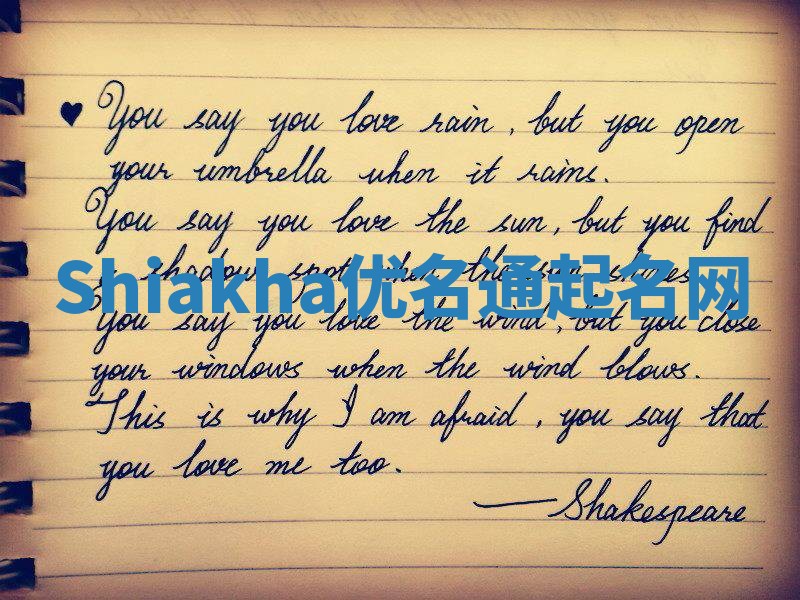 ♥ You say you love rain, but you open
your umbrella when it rains.
You say you love the sun, but you find
a shadow spot when the sun shines.
Shiakha优名通起名网
You say you love the wind, but you close
your windows when the wind blows.
This is why I am afraid, you say that
you love me too.
—Shakespeare